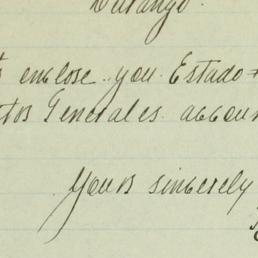 Durango.
enclose you Estado
tos Generales accoun
Yours sincerely